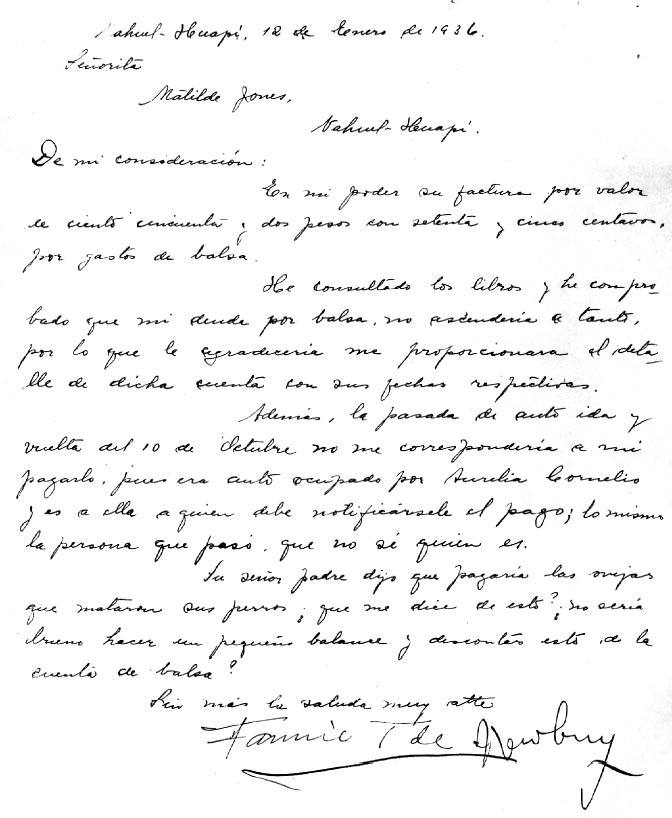 Nahuel-Huapi, 12 de Enero de 1936.
Señorita
Matilde Jones,
Nahuel-Huapi.
De mi consideración:
En mi poder su factura por valor
de ciento cincuenta y dos pesos con setenta y cinco centavos,
por gastos de balsa.
He consultado los libros y he compro-
bado que mi deuda por balsa, no ascendería a tanto,
por lo que le agradecería me proporcionara el deta-
lle de dicha cuenta con sus fechas respectivas.
Además, la pasada de auto ida y
vuelta del 10 de Octubre no me correspondería a mi
pagarlo, pues era auto ocupado por Aurelia Cornelio
y es a ella a quien debe notificársele el pago; lo mismo
la persona que pasó, que no sé quien es.
Su señor padre dijo que pagaría las ovejas
que mataron sus perros, que me dice de esto?, no sería
bueno hacer un pequeño balance y descontar esto de la
cuenta de balsa?
Sin más la saluda muy atte
Fannie T de Newbery